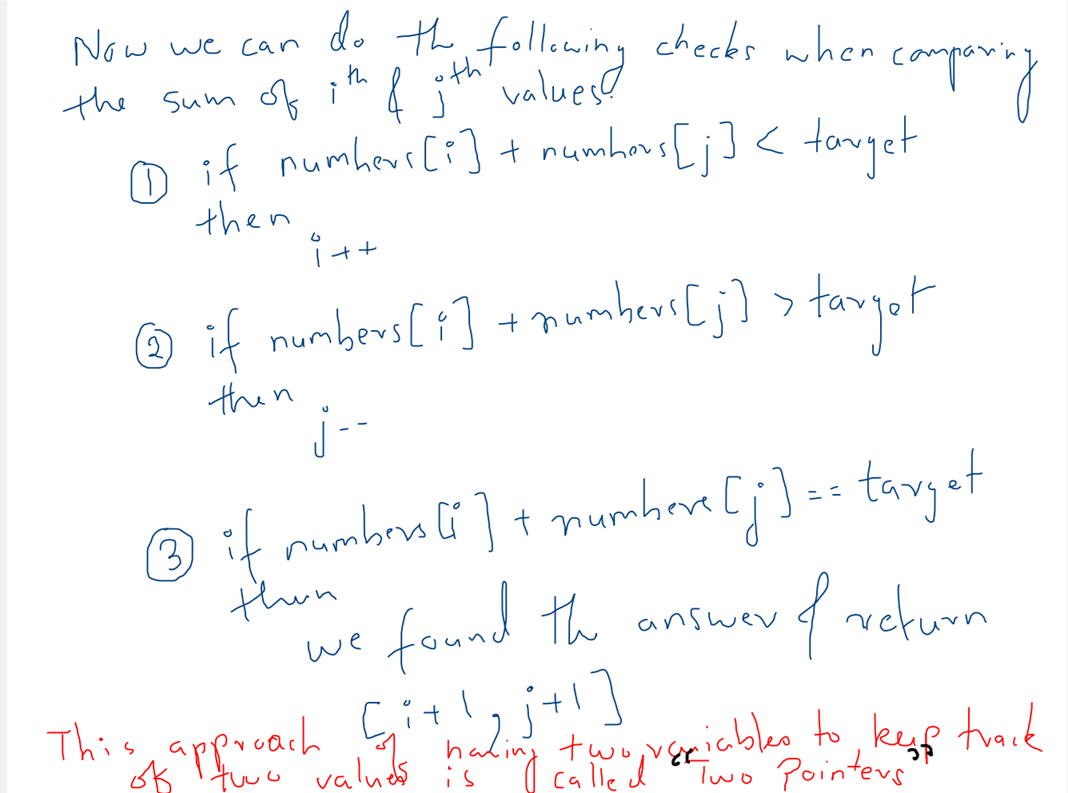 Now we can do th following checks when comparing
the sum of ith & jth values.
① if numbers[i] + numbers[j] < target
then
i++
② if numbers[i] + numbers[j] > target
then
j--
③ if numbers[i] + numbers[j] == target
then
we found th answer & return
[i+1, j+1]
This approach of having two variables to keep track
of two values is called "Two Pointers"